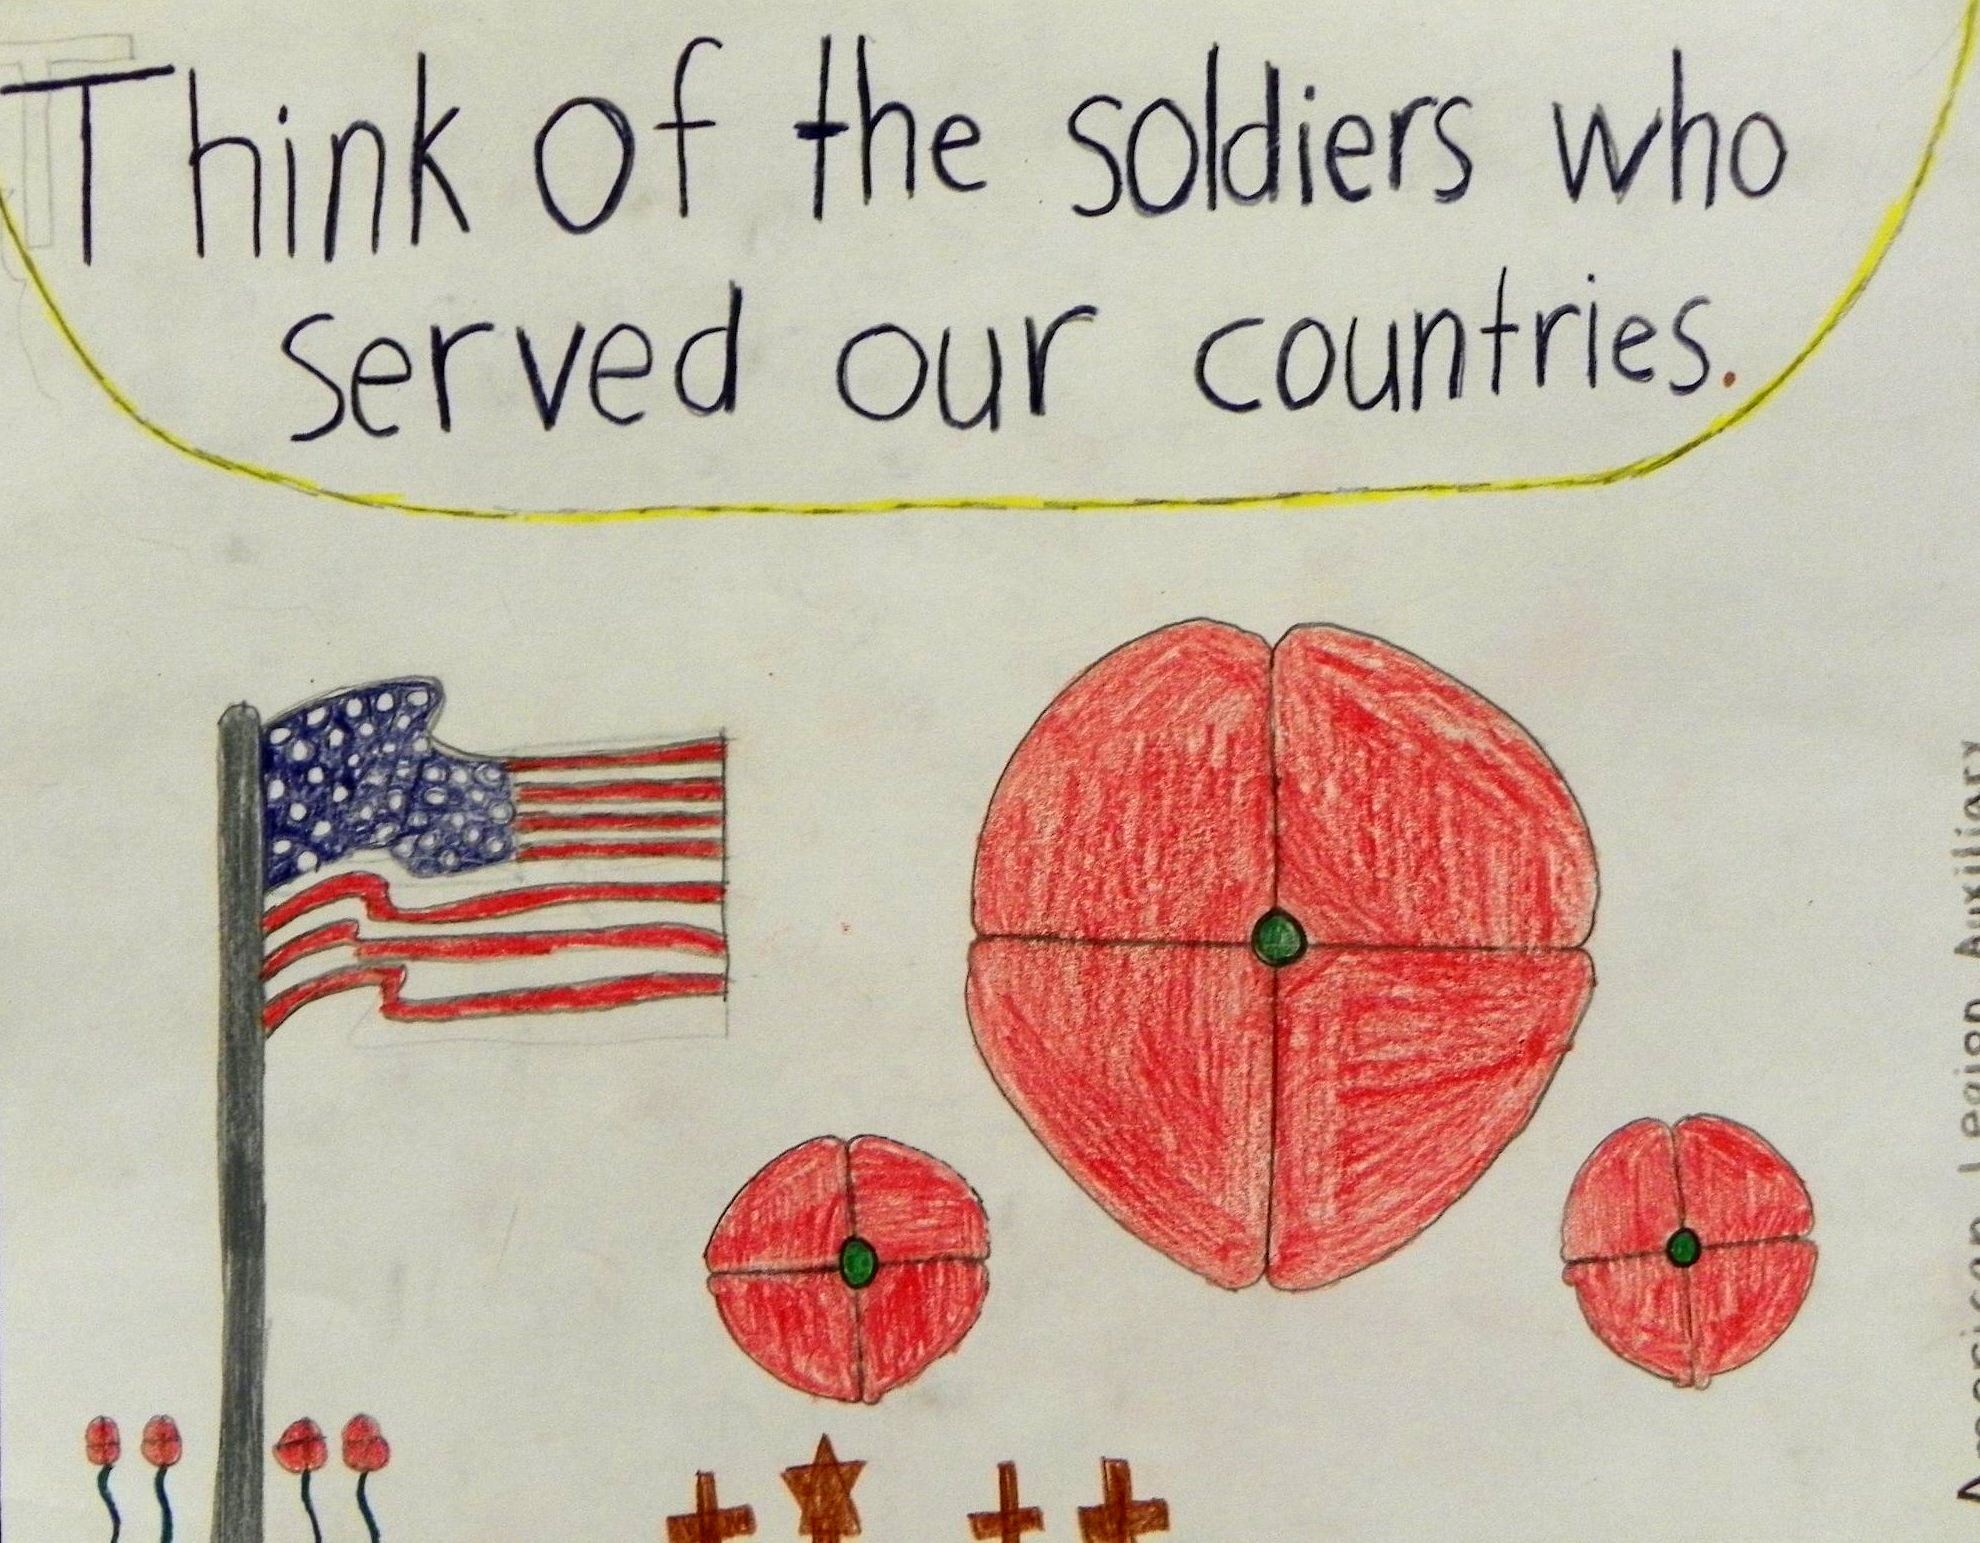 Think of the soldiers who
served our countries.
American Legion Auxiliary